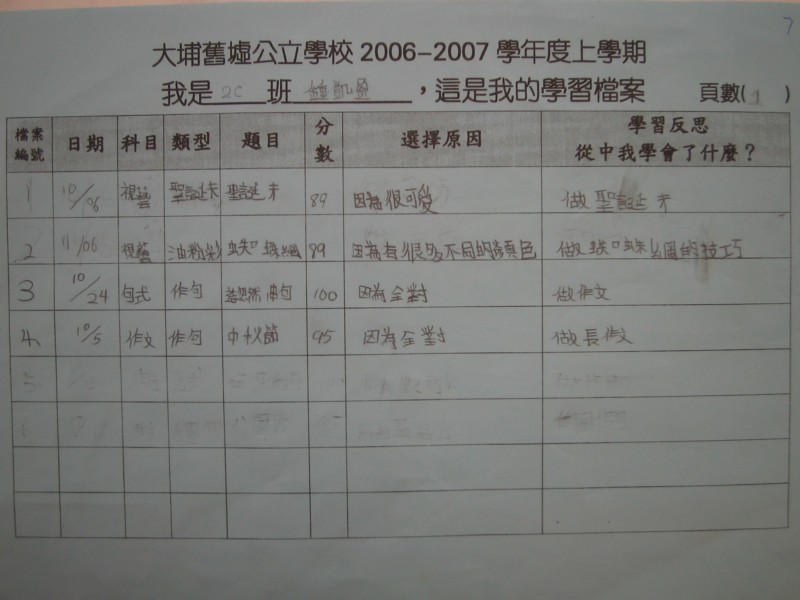 7
大埔舊墟公立學校 2006-2007 學年度上學期
我是 2C 班 鍾凱盈 ，這是我的學習檔案 頁數( 1 )
檔案編號 日期 科目 類型 題目 分數 選擇原因 學習反思 從中我學會了什麼？
1 10/06 視藝 聖誕襪 聖誕 89 因為很可愛 做聖誕
2 11/06 視藝 油粉彩 蜘蛛網 89 因為有很多不同的顏色 做蜘蛛網的技巧
3 10/24 句式 作句 造句 100 因為全對 做作文
4 10/5 作文 作句 中秋節 95 因為全對 做長作文